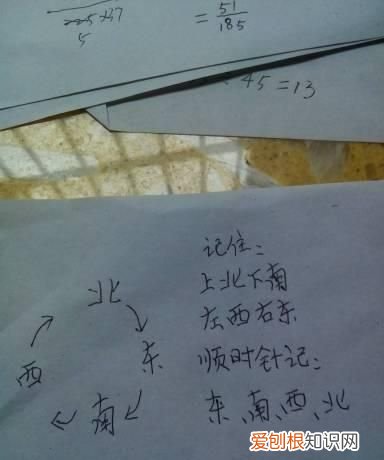 225×37
5
= 51
185
45=13
记住:
上北下南
左西右东
顺时针记:
东、南、西、北
北
西
东
南
爱刨根知识网
www.baogen.com